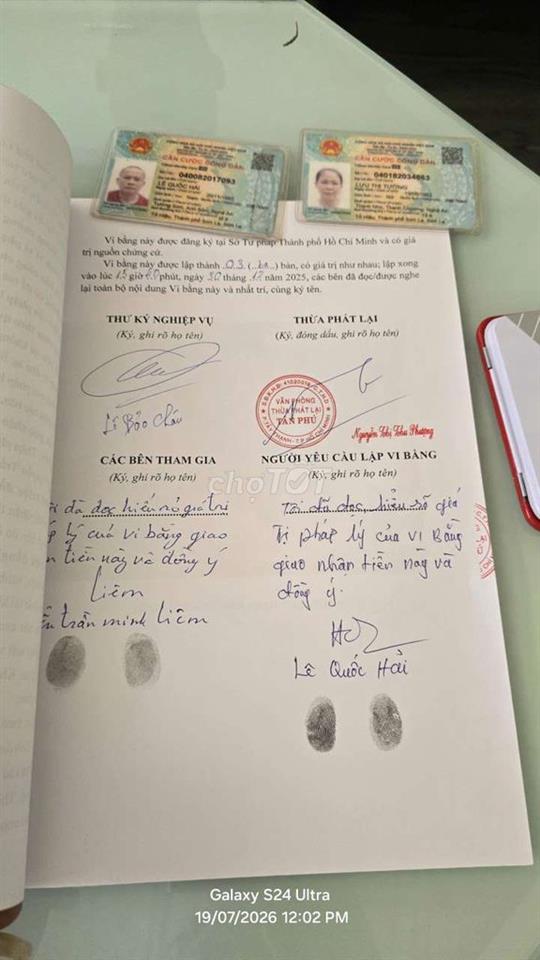 CỘNG HÒA XÃ HỘI CHỦ NGHĨA VIỆT NAM
CĂN CƯỚC CÔNG DÂN
040082017093
LÊ QUỐC HẢI
CĂN CƯỚC CÔNG DÂN
040182034663
LƯU THỊ TƯỜNG
Vi bằng này được đăng ký tại Sở Tư pháp Thành phố Hồ Chí Minh và có giá
trị nguồn chứng cứ.
Vi bằng này được lập thành 03 (ba) bản, có giá trị như nhau; lập xong
vào lúc giờ phút, ngày 30 tháng 12 năm 2025, các bên đã đọc/được nghe
lại toàn bộ nội dung Vi bằng này và nhất trí, cùng ký tên.
THƯ KÝ NGHIỆP VỤ
(Ký, ghi rõ họ tên)
THỪA PHÁT LẠI
(Ký, đóng dấu, ghi rõ họ tên)
VĂN PHÒNG
THỪA PHÁT LẠI
TÂN PHÚ
Lê Bảo Châu
Nguyễn Thị Thu Phượng
CÁC BÊN THAM GIA
(Ký, ghi rõ họ tên)
NGƯỜI YÊU CẦU LẬP VI BẰNG
(Ký, ghi rõ họ tên)
chợTỐT
đã đọc hiểu rõ giá trị
lý của vi bằng giao
tiền này và đồng ý
Liêm
trần minh Liêm
Tôi đã đọc, hiểu rõ giá
Trị pháp lý của Vi Bằng
giao nhận tiền này và
đồng ý.
Lê Quốc Hải
Galaxy S24 Ultra
19/07/2026 12:02 PM